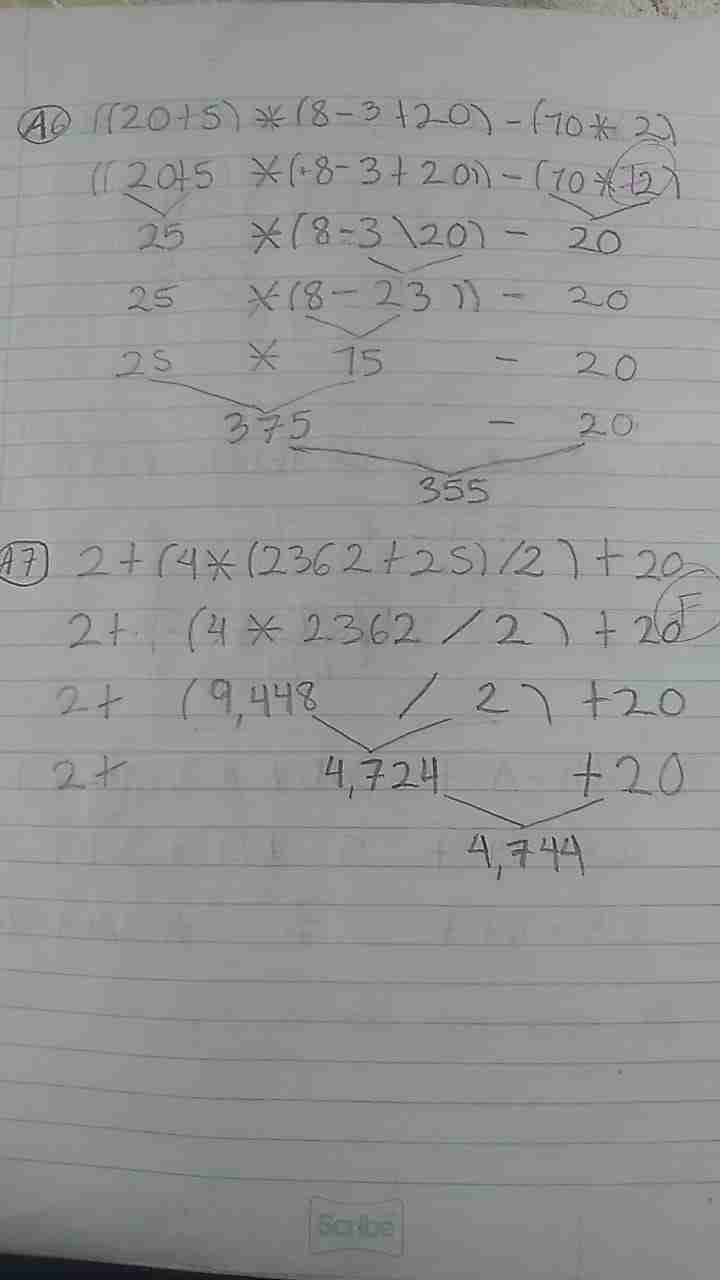 A6 ((20+5) * (8-3+20) - (10 * 2)
((20+5 * (+8-3+20)) - (10 * +2)
25 * (8-3\20) - 20
25 * (8-23)) - 20
25 * 15 - 20
375 - 20
355
A7 2+(4*(2362+25)/2)+20
2+ (4 * 2362 / 2) +20 F
2+ (9,448 / 2) +20
2+ 4,724 +20
4,744
Scribe